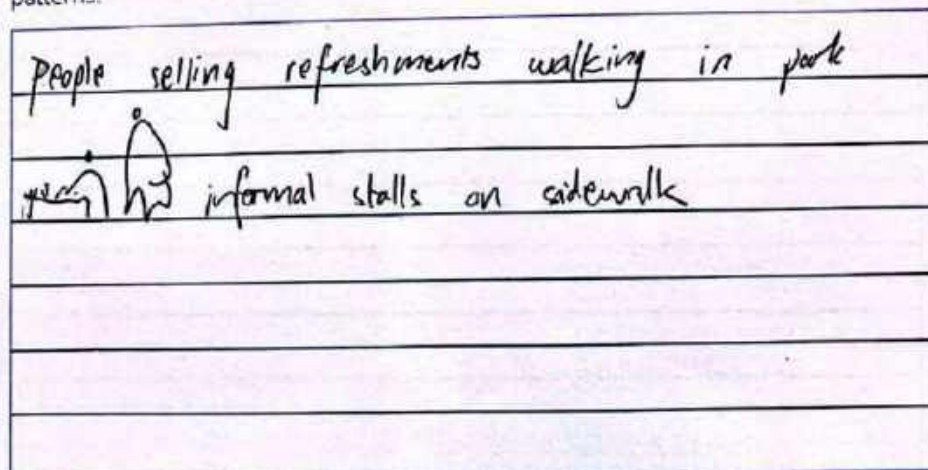 patterns.
people selling refreshments walking in park
informal stalls on sidewalk